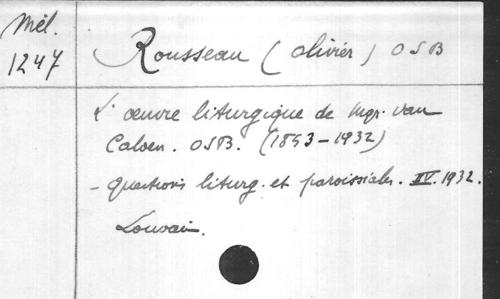 Mél.
1247
Rousseau (Olivier) OSB
L'œuvre liturgique de Mgr. van
Caloen. OSB. (1853-1932)
- Questions liturg. et paroissiales. IV. 1932.
Louvain.